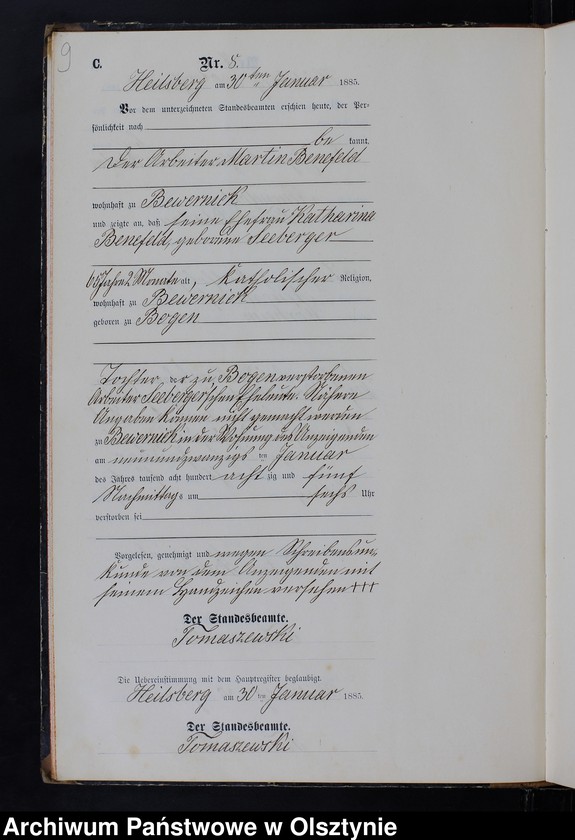 9
C.
Nr. 8.
Heilsberg am 30ten Januar 1885.
Vor dem unterzeichneten Standesbeamten erschien heute, der Per-
sönlichkeit nach
be kannt,
der Arbeiter Martin Benefeld
wohnhaft zu Bewernick
und zeigte an, daß seine Ehefrau Katharina
Benefeld, geborene Seeberger
65 Jahre 2 Monate alt, katholischer Religion,
wohnhaft zu Bewernick
geboren zu Bogen
Tochter der zu Bogen verstorbenen
Arbeiter Seeberger'schen Eheleute. Nähere
Angaben können nicht gemacht werden
zu Bewernick in der Wohnung des Anzeigenden
am neunundzwanzigsten Januar
des Jahres tausend acht hundert achtzig und fünf
Nachmittags um sechs Uhr
verstorben sei
Vorgelesen, genehmigt und wegen Schreibensun-
kunde von dem Anzeigenden mit
seinem Handzeichen versehen +++
Der Standesbeamte.
Tomaszewski
Die Uebereinstimmung mit dem Hauptregister beglaubigt.
Heilsberg am 30ten Januar 1885.
Der Standesbeamte.
Tomaszewski
Archiwum Państwowe w Olsztynie